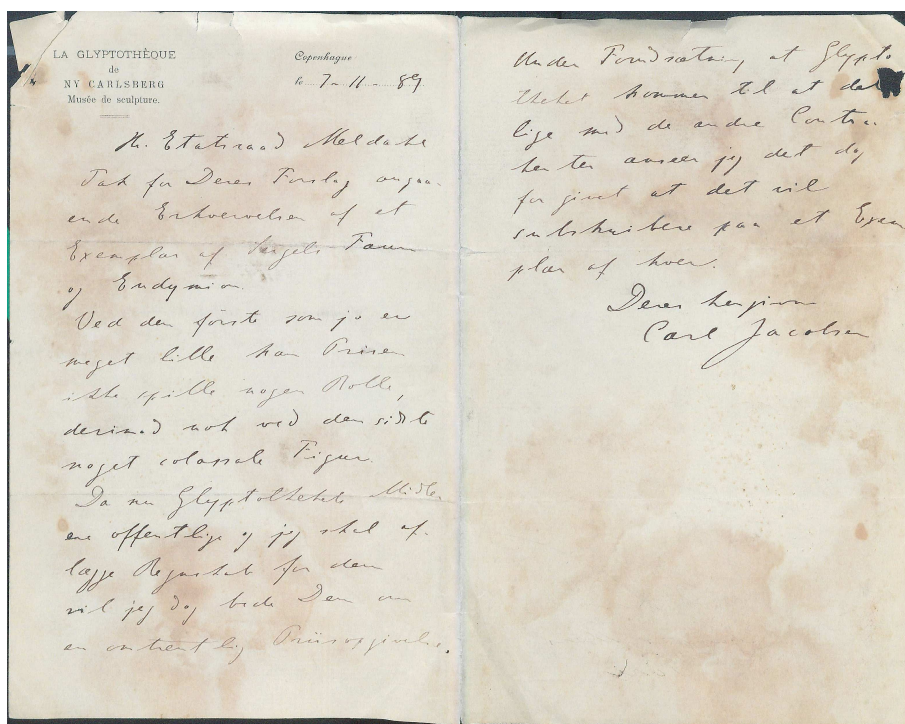 LA GLYPTOTHÈQUE
de
NY CARLSBERG
Musée de sculpture.
Copenhague
le 7-11-89.
Hr. Etatsraad Meldahl
Tak for Deres Forslag angaa-
ende Erhvervelsen af et
Exemplar af Sergels Faun
og Endymion.
Ved den første som jo er
meget lille kan Prisen
ikke spille nogen Rolle,
derimod nok ved den sidste
noget colossale Figur.
Da nu Glyptothekets Midler
ere offentlige og jeg skal af-
lægge Regnskab for dem
vil jeg dog bede Dem om
en omtrentlig Priisopgivelse.
Under Forudsætning at Glypto-
theket kommer til at
lige med de andre Contra-
henter anseer jeg det dog
for givet at det vil
subskribere paa et Exem
plar af hver.
Deres hengivne
Carl Jacobsen